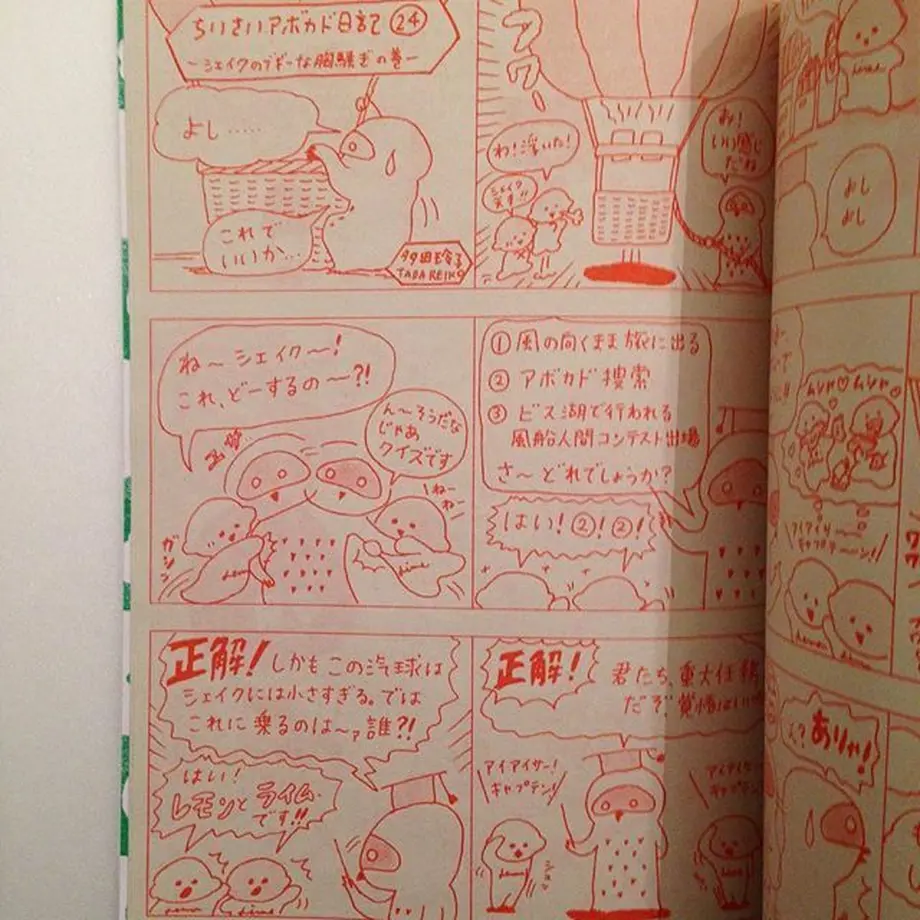 ちいさいアボカド日記 ㉔
～シェイクのブギーな胸騒ぎの巻～
よし……
これで
いいか…
多田玲子
TADA REIKO
フワー
わ!浮いた!
シェイク
天才!!
お!
いい感じ
だね
ね～シェイク～!
これ、どーするの～?!
ん～そうだな
じゃあ
クイズです
ガシン
ねー
ねー
① 風の向くまま旅に出る
② アボカド捜索
③ ビス湖で行われる
風船人間コンテスト出場
さ～どれでしょうか?
はい!②!②!
正解!しかもこの汽球は
シェイクには小さすぎる。では
これに乗るのは～ァ誰?!
はい!
レモンとライム
です!!
Lime
正解!
君たち、重大任務
だぞ、覚悟はいい
アイアイサー!
キャプテン!
アイアイサー
キャプテン
よし
よし
ムシャ♡ムシャ
アイアイサー
キャプテーン!
ありゃ!